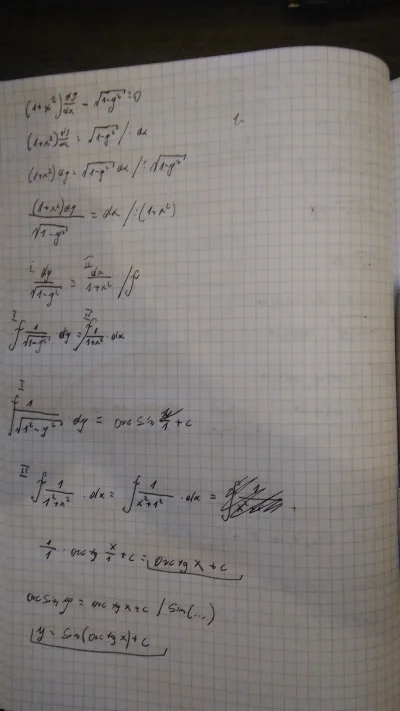 (1+x²) dy/dx - √(1-y²) = 0
1.
(1+x²) dy/dx = √(1-y²) /· dx
(1+x²) dy = √(1-y²) dx /: √(1-y²)
(1+x²)dy / √(1-y²) = dx /: (1+x²)
I dy/√(1-y²) = II dx/(1+x²) /∫
I ∫ 1/√(1-y²) dy = II ∫ 1/(1+x²) · dx
I ∫ 1/√(1²-y²) dy = arc sin y/1 + c
II ∫ 1/(1²+x²) · dx = ∫ 1/(x²+1²) · dx =
1/1 · arc tg x/1 + c = arc tg x + c
arc sin y = arc tg x + c / sin(...)
y = sin(arc tg x) + c